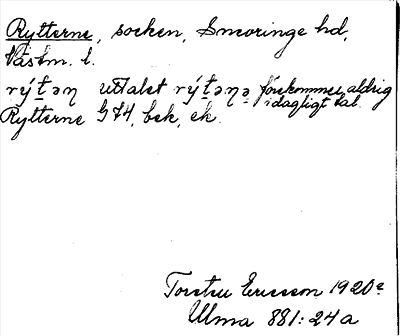 Rytterne, socken, Snevringe hd,
Västm. l.
rýt̲ən uttalet rýt̲ənə förekommer aldrig
i dagligt tal.
Rytterne G74, bek, ek.
Torsten Ericsson 1920
Ulma 881:24a